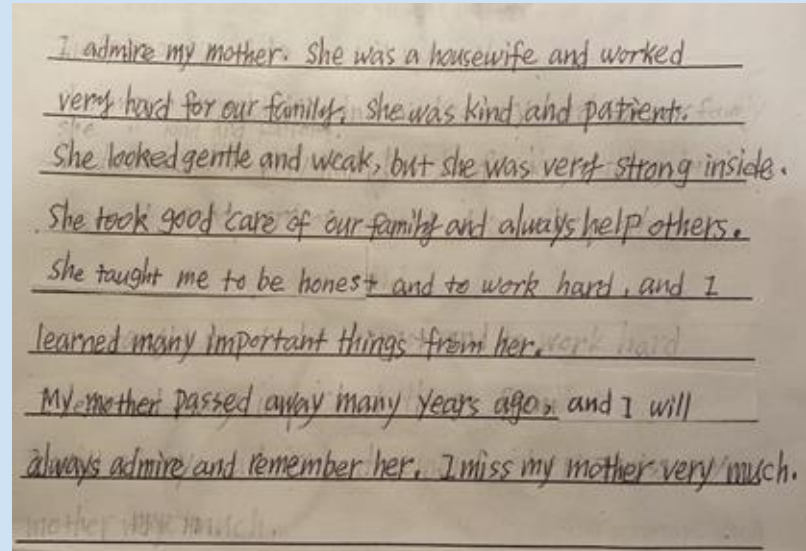 I admire my mother. She was a housewife and worked
very hard for our family. She was kind and patient.
She looked gentle and weak, but she was very strong inside.
She took good care of our family and always help others.
She taught me to be honest and to work hard, and I
learned many important things from her.
My mother passed away many years ago, and I will
always admire and remember her. I miss my mother very much.